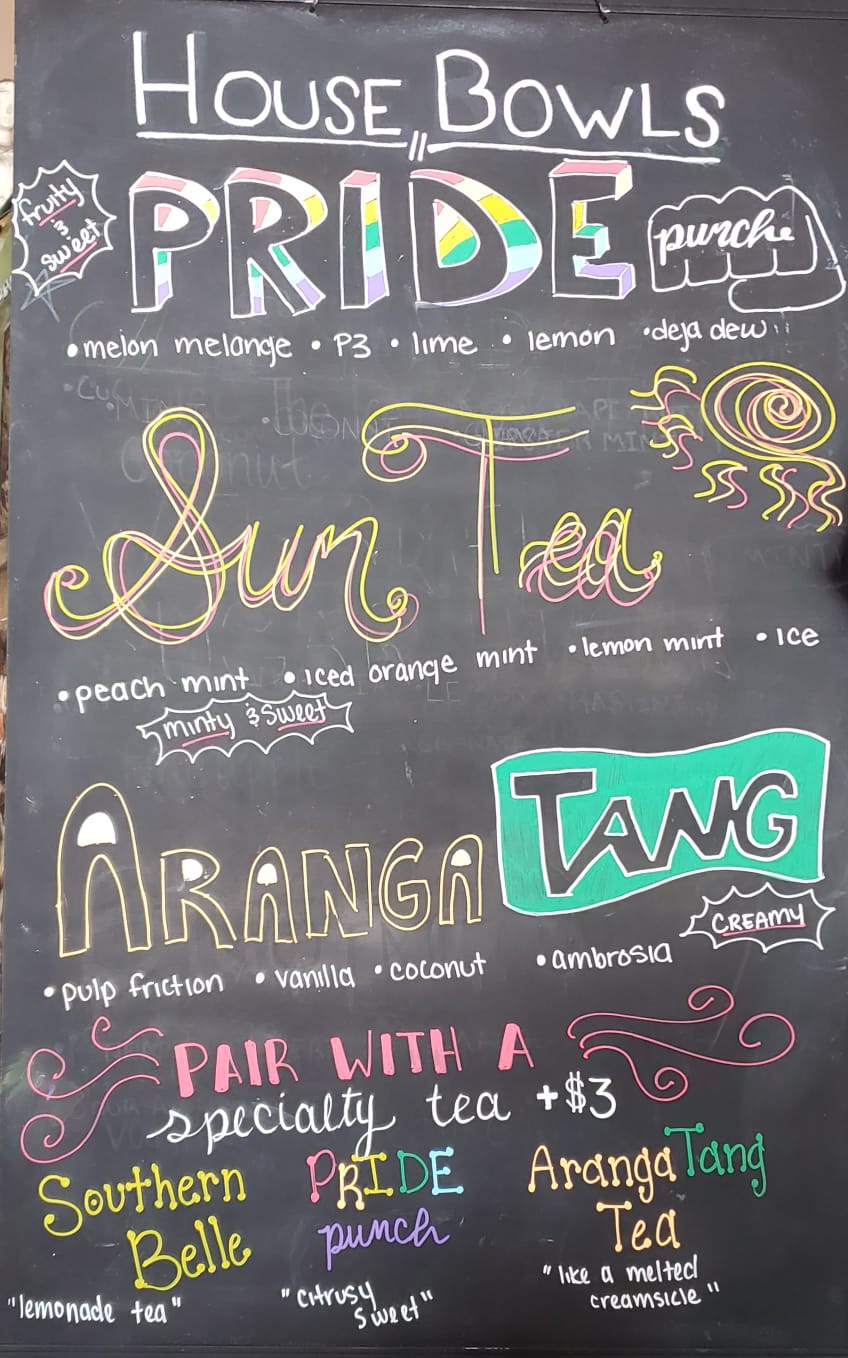 HOUSE BOWLS
fruity
&
sweet
PRIDE punch
• melon melange • P3 • lime • lemon • deja dew
Sun Tea
• peach mint • iced orange mint • lemon mint • ice
minty & sweet
ARANGA TANG
CREAMY
• pulp friction • vanilla • coconut • ambrosia
PAIR WITH A
specialty tea + $3
Southern
Belle
"lemonade tea"
PRIDE
punch
"citrusy
sweet"
Aranga Tang
Tea
"like a melted
creamsicle"